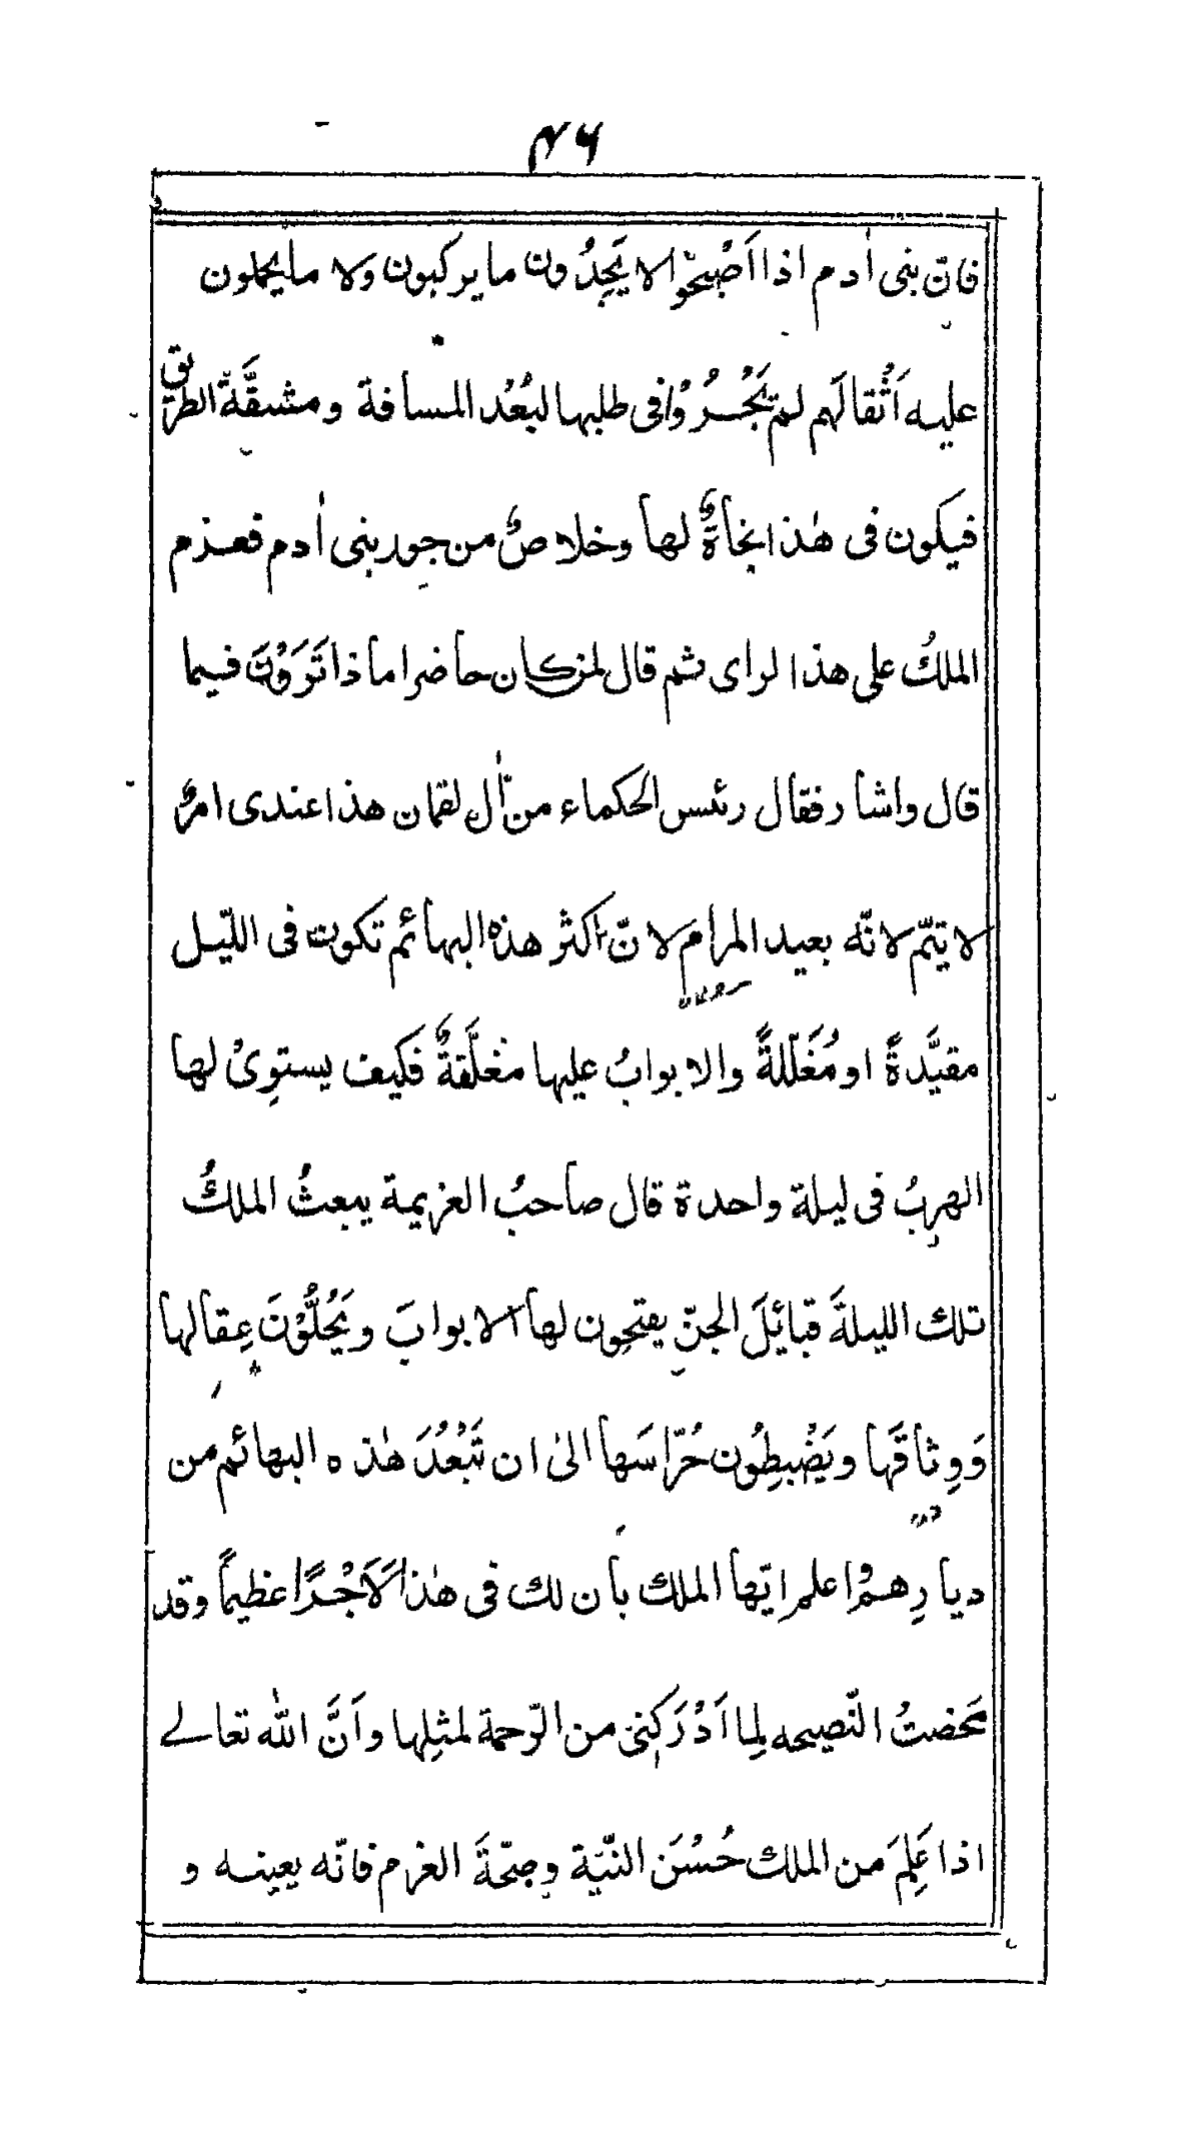 ۴۶
فانّ بنى اٰدم اذا اَصْبحُوْا لا يَجِدُون ما يركبون ولا ما يحملون
عليه اَثْقالَهم لم يَجْسُرُوْا فى طلبها لبُعْد المسافة ومشقَّة الطريق
فيكون فى هٰذا نجاةٌ لها وخلاصٌ من جور بنى اٰدم فعزم
الملكُ على هذا الراى ثم قال لمن كان حاضرا ماذا تَرَوْنَ فيما
قال واشار فقال رئس الحكماء من اٰل لقمان هذا عندى امرٌ
لا يتمّ لانّه بعيد المرام لانّ اكثر هذه البهائم تكون فى اللّيل
مقيَّدةً او مُغَلّلةً والابوابُ عليها مغلَّقةٌ فكيف يستوِىْ لها
الهربُ فى ليلة واحدة قال صاحبُ العزيمة يبعثُ الملكُ
تلك الليلةَ قبائلَ الجنّ يفتحون لها الابوابَ ويَحُلُّوْنَ عِقالها
وَوِثاقَها ويَضْبطُون حُرّاسَها الىٰ ان تَبْعُدَ هٰذه البهائم من
ديارِهمْ واعلم ايّها الملك بان لك فى هٰذا لَاَجْرًا عظيماً وقد
مَحضتُ النّصيحه لِما اَدْرَكنى من الرّحمة لمثلِها واَنَّ اللّٰه تعالے
اذا عَلِمَ من الملك حُسْنَ النّيّة وصِحّةَ العزم فانّه يعينه و